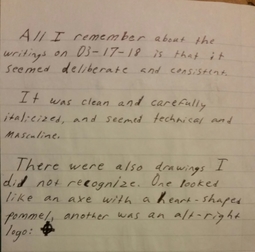 All I remember about the
writings on 03-17-18 is that it
seemed deliberate and consistent.
It was clean and carefully
italicized, and seemed technical and
masculine.
There were also drawings I
did not recognize. One looked
like an axe with a heart-shaped
pommel, another was an alt-right
logo: